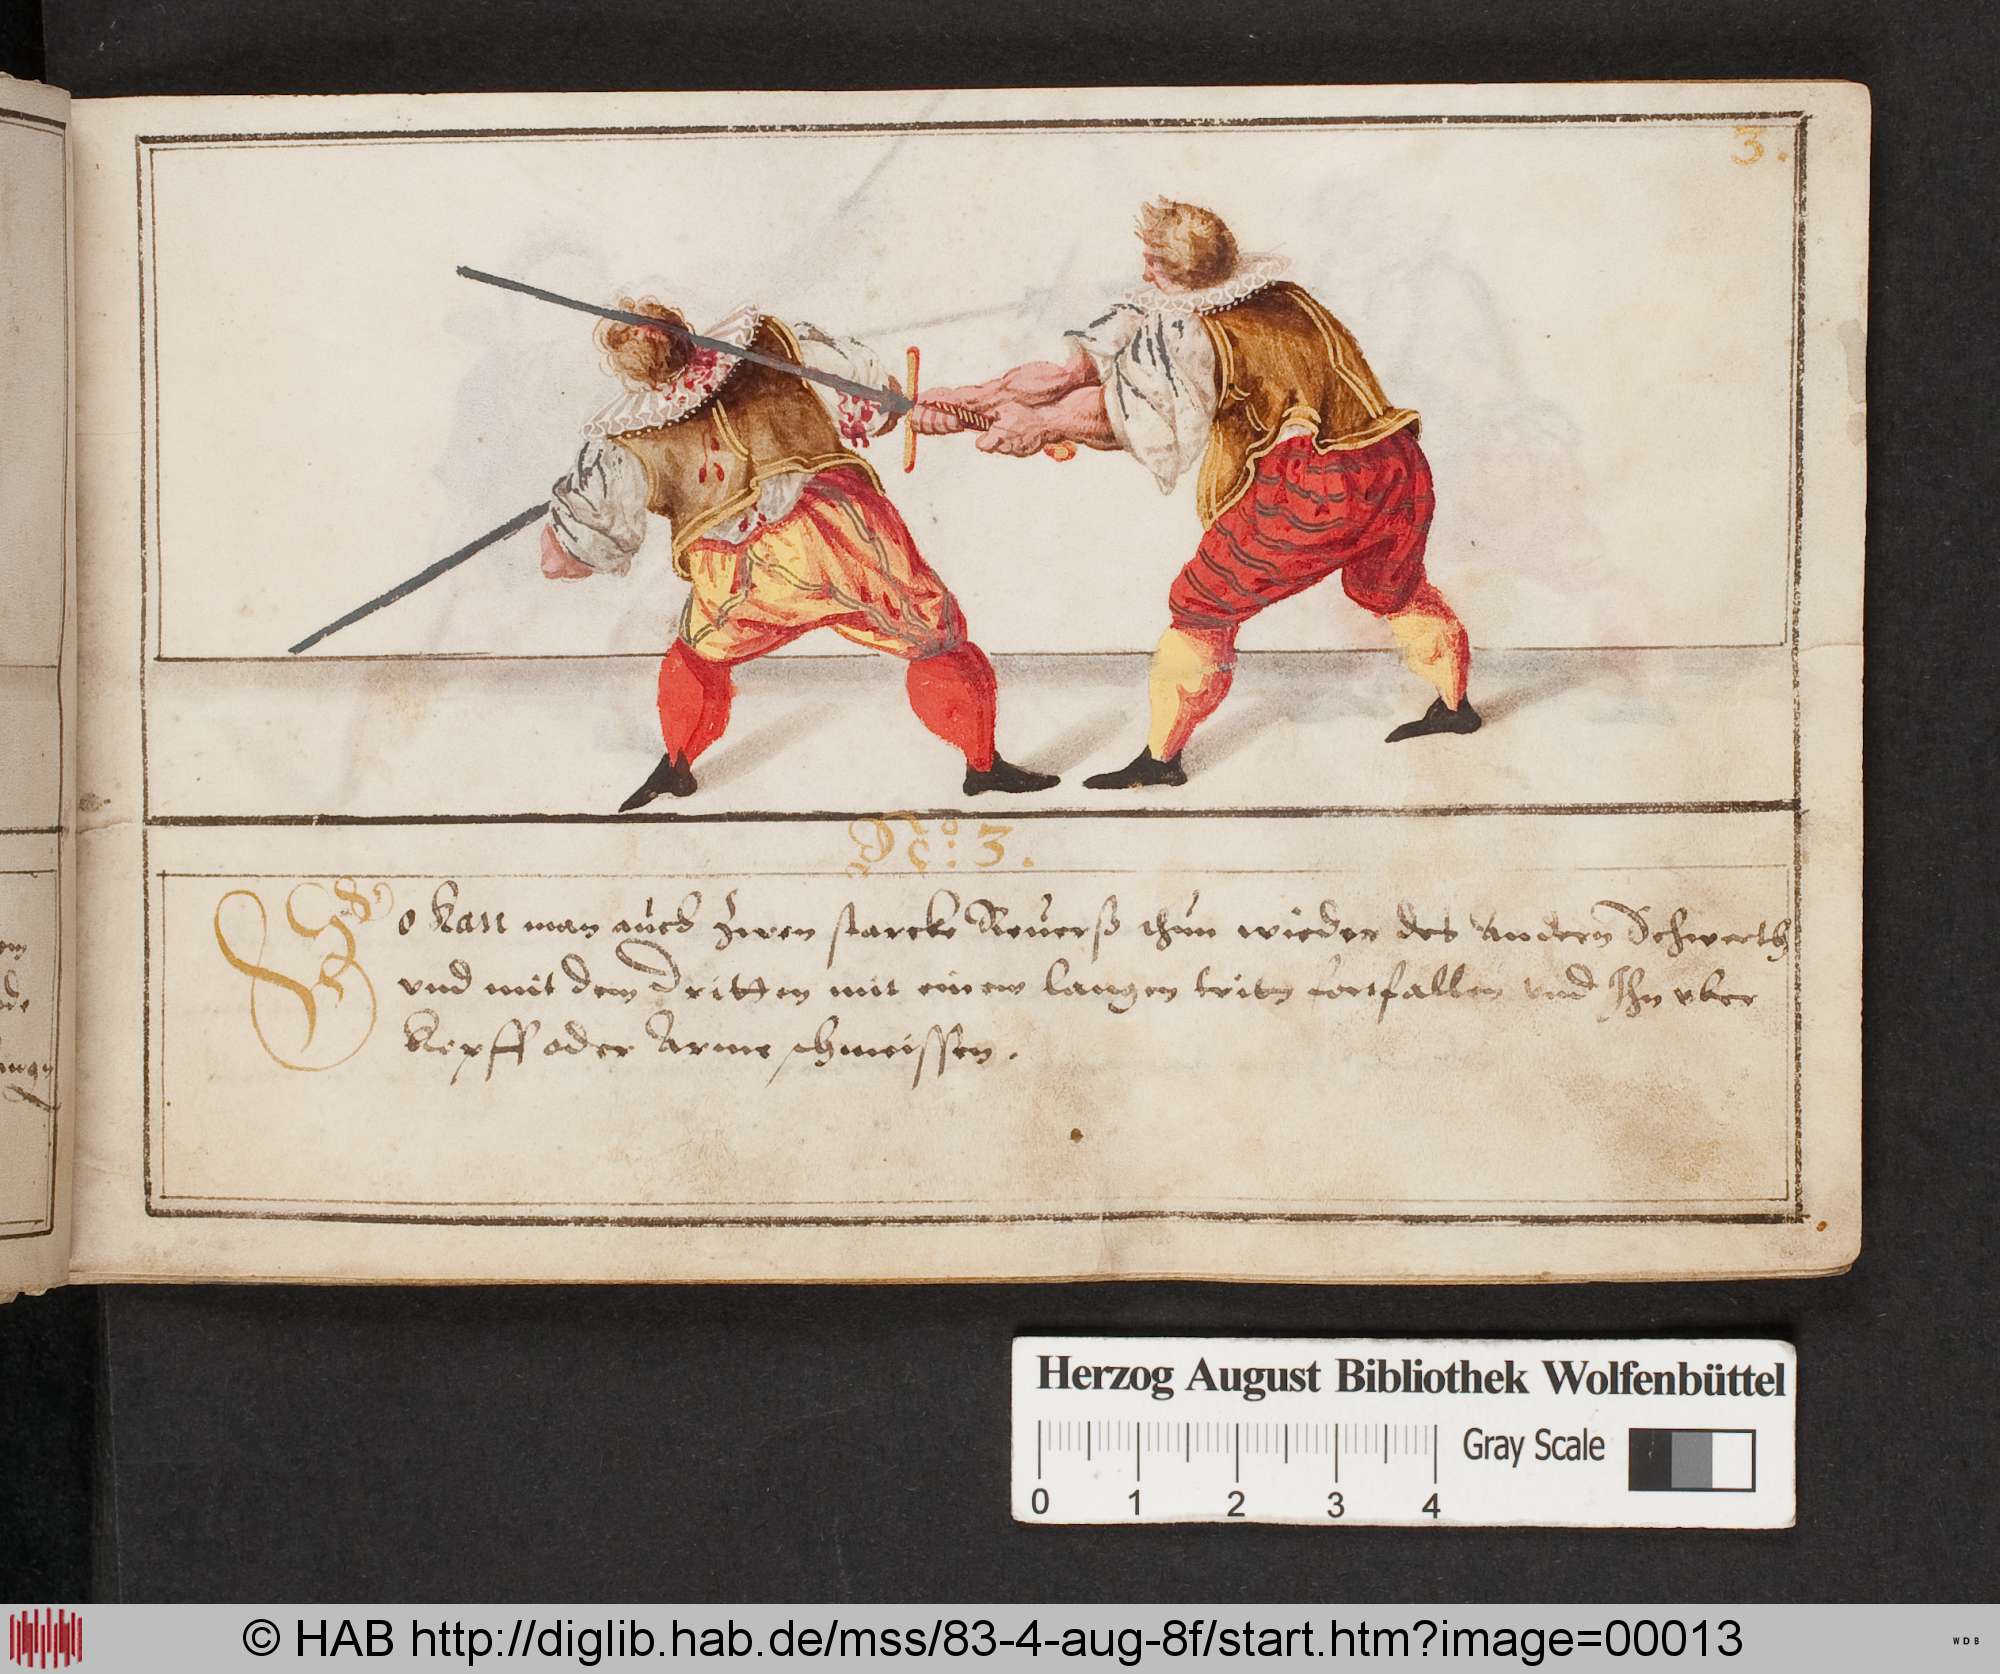 3.
No: 3.
So kan man auch zwen starcke Reuerß thun wieder des Andern Schwerth
vnd mit dem Dritten mit einem langen tritt fortfallen vnd Ihn vber
Kopff oder Arme schmeissen.
em
de
Herzog August Bibliothek Wolfenbüttel
0 1 2 3 4 Gray Scale
© HAB http://diglib.hab.de/mss/83-4-aug-8f/start.htm?image=00013
WDB